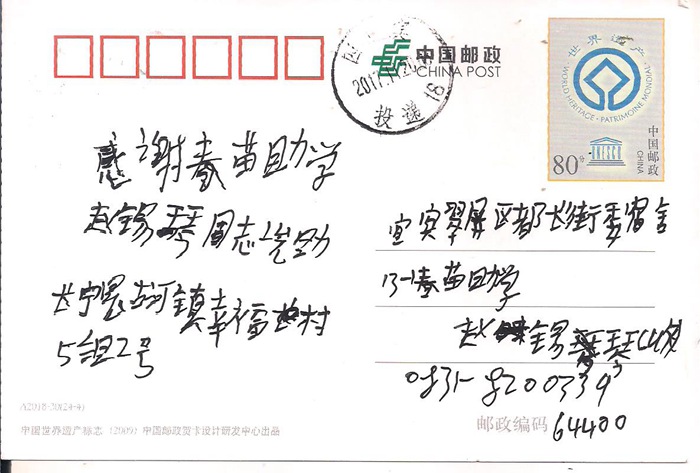 中国邮政
CHINA POST
2017.11.20
投递
世界遗产
WORLD HERITAGE · PATRIMOINE MONDIAL
UNESCO
80分
中国邮政
CHINA
感谢春苗助学
赵锡琴 周志
长宁县 镇幸福 村
5组2号
宜宾翠屏区都长街委宿舍
13-1春苗助学
赵 锡
0831-8200339
邮政编码 64400
A2018-20(24-4)
中国世界遗产标志(2009) 中国邮政贺卡设计研发中心出品